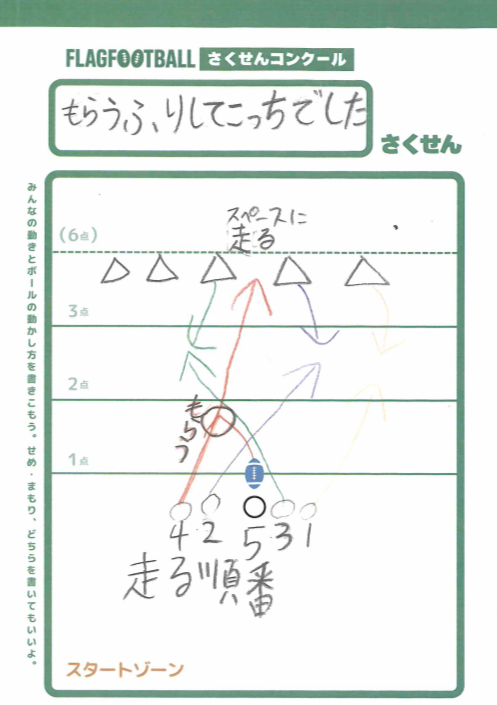 FLAGFOOTBALL さくせんコンクール
もらうふりしてこっちでした
さくせん
みんなの動きとボールの動かし方を書きこもう。せめ・まもり、どちらを書いてもいいよ。
スペースに
走る
(6点)
3点
2点
もらう
1点
4 2 5 3 1
走る順番
スタートゾーン